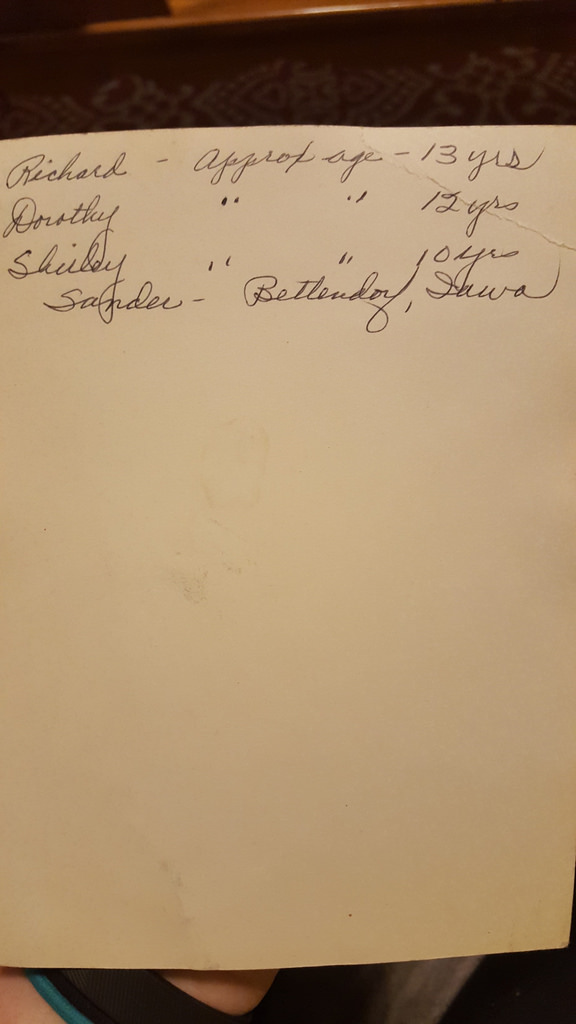 Richard - Approx age - 13 yrs
Dorothy " " 12 yrs
Shirley " " 10 yrs
Sander - Bettendorf, Iowa